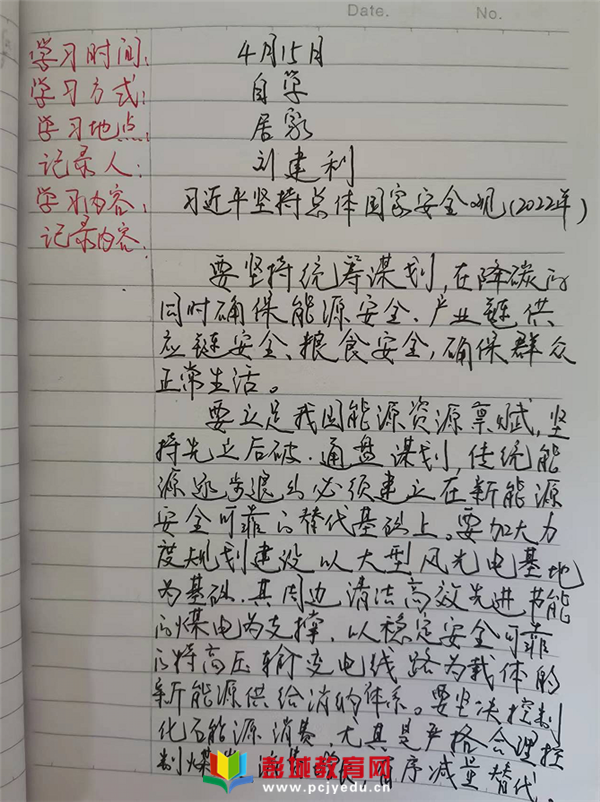 Date. No.
学习时间: 4月15日
学习方式: 自学
学习地点: 居家
记录人: 刘建利
学习内容: 习近平坚持总体国家安全观(2022年)
记录内容:
要坚持统筹谋划,在降碳的
同时确保能源安全、产业链供
应链安全、粮食安全,确保群众
正常生活。
要立足我国能源资源禀赋,坚
持先立后破.通盘谋划,传统能
源逐步退出必须建立在新能源
安全可靠的替代基础上。要加大力
度规划建设以大型风光电基地
为基础.其周边清洁高效先进节能
的煤电为支撑,以稳定安全可靠
的特高压输变电线路为载体的
新能源供给消纳体系。要坚决控制
化石能源消费,尤其是严格合理控
制煤 序减量替代.
彭城教育网
www.pcjyedu.cn